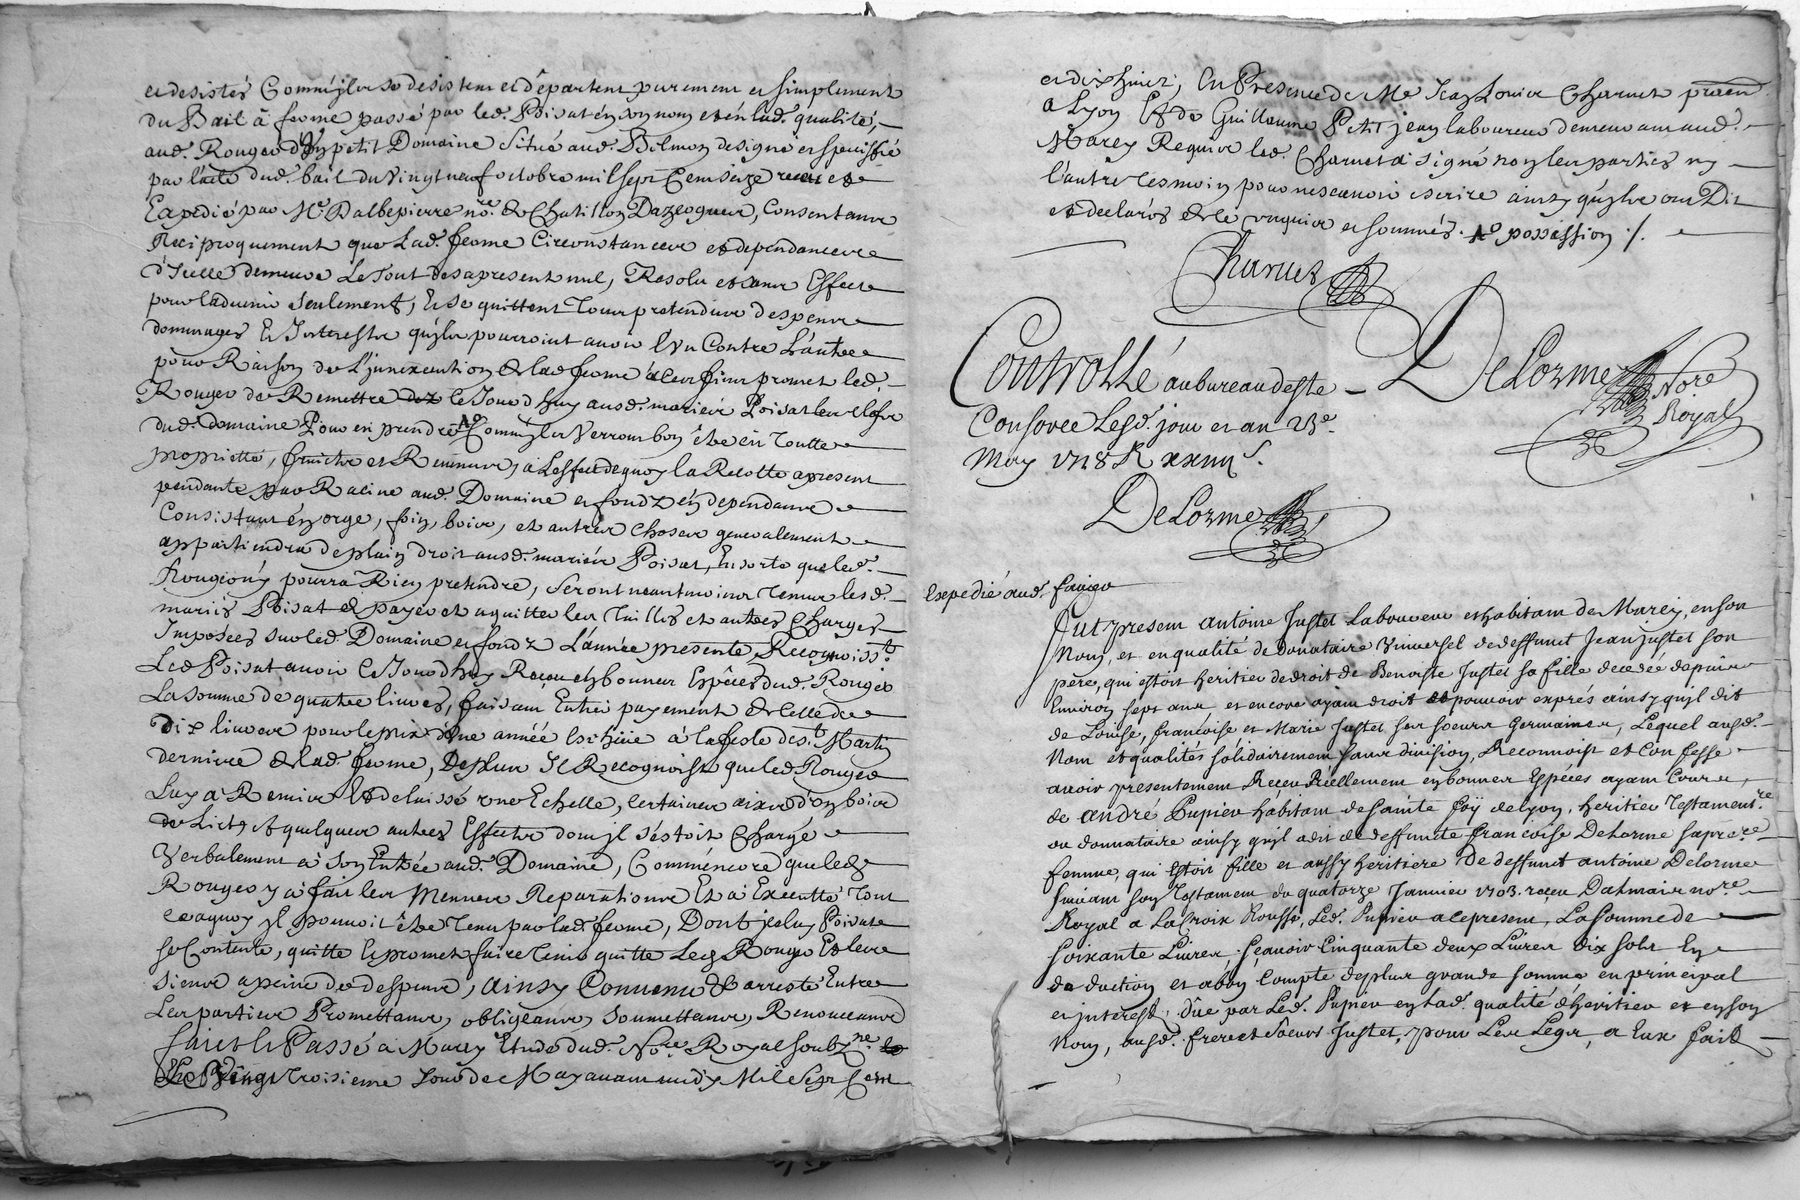 et desistés Comme jls se desistent et départent purement et simplement
du Bail à ferme passé par led. Poisat en son nom et en lad. qualité,
aud. Rouger d'un petit Domaine situé aud. designé et speciffié
par l'acte dud. bail du vingt neuf octobre mil sept Cent seize receu et
Expedié par Me Dalbepierre nore. de Chatillon Dazergues, Consentants
Reciproquement que Lad. ferme Circonstances et dependances
d'Icelle demeure Le tout des apresent nul, Resolu et sans Effect
pour Ladvenir seulement, Et se quittent Tous pretendus despens
dommages Et Interests qu'jls pourroint avoir l'Un Contre L'autre
pour Raison de L'jnexecution de lad. ferme promet led.
Rouger de Remettre ce Jourd'huy ausd. mariés Poisat les clefs
dud. domaine Pour en prendre Comme jls Verront bon être en toutte
proprietté, fruicts et Revenus, a L'effect de quoy la Recolte apresent
pendante par Racine aud. Domaine et fondz en dependants
Consistant en orge, foin, bois, et autres choses generalement
appartiendra de plain droit ausd. mariés Poisat, En sorte que led.
Rouger n'y pourra Rien pretendre, seront neantmoins Tenus lesd.
mariés Poisat de payer et aquitter les Tailles et autres Charges
Imposées sur led. Domaine et fondz L'année presente, Recognoisst.
Led. Poisat avoir ce Jourd'huy Receu en bonnes Espêces dud. Rouger
La somme de quatre livres, faisant Entier payement de Celle de
dix livres pour le prix d'une année Eschüe à la feste de st. Martin
derniere de lad. ferme, Deplus Il Recognoist que led. Rouger
Luy a Remis Et delaissé une Echelle, Certaines aix d'un bois
de Lict, et quelques autres Effects dont jl s'estoit Chargé
Verbalement à son Entrée aud. Domaine, Comm'encore que led.
Rouger y a fait les Menues Reparations Et a Executté Tout
ce aquoy jl pouvoit être Tenu par lad. ferme, Dont jceluy Poisat
se Contente, quitte Et promet faire Tenir quitte Led. Rouger Et les
siens a peine de despens, ainsy Convenu & arresté Entre
Les parties Promettants, obligeants, soumettants, Renonceants
fait et Passé a Marcy Etude dud. Nore. Royal soubzné.
Le Vingt troisieme Jour de May avant midy Mil sept Cent
et dix huict, En Presence de Me Jean Louis Charvet praticn.
a Lyon Et de Guillaume Petitjean laboureur demeurant aud.
Marcy Requis led. Charvet a signé non les parties ny
l'autre tesmoin pour ne scavoir escrire ainsy qu'jls ont Dit
et declarés de ce enquis et sommés. possession ./.
Charvet
Controllé au bureau de ste
Consorce Lesd. jour et an 23e.
May 1718 R xxiiij s.
DeLorme Nore
Royal
DeLorme
Expedié aud. Pupier
Fut present antoine Justet Laboureur et habitant de Marcy, en son
Nom, et en qualité de Donataire Universel de deffunct Jean Justet son
père, qui estoit heritier de droit de Benoiste Justet sa fille decedée depuis
Environ sept ans, et encore ayant droit et pouvoir exprés ainsy qu'jl dit
de Loüise, francoise et Marie Justet ses soeurs Germaines, Lequel ausd.
Nom et qualités solidairement sans division, Reconnoist et Confesse
avoir presentement Receu Réellement en bonnes Espéces ayant Cours,
de andré Pupier habitant de sainte foÿ de lyon, heritier testamentre
ou donnataire ainsy qu'jl a dit de deffuncte francoise Delorme sa premre
femme, qui Estoit fille et aussy heritiere de deffunct antoine Delorme
suivant son Testament du quatorze Janvier 1703. receu Dalmais nore.
Royal a La Croix Rousse, Led. Pupier a ce present, La somme de
soixante Livres, scavoir Cinquante deux Livres dix sols En
deduction et abon Compte de plus grande somme en principal
et interest, dûe par Led. Pupier en lad. qualité d'heritier et en son
Nom, ausd. freres et soeurs Justet, pour Les Legs, a Eux fait